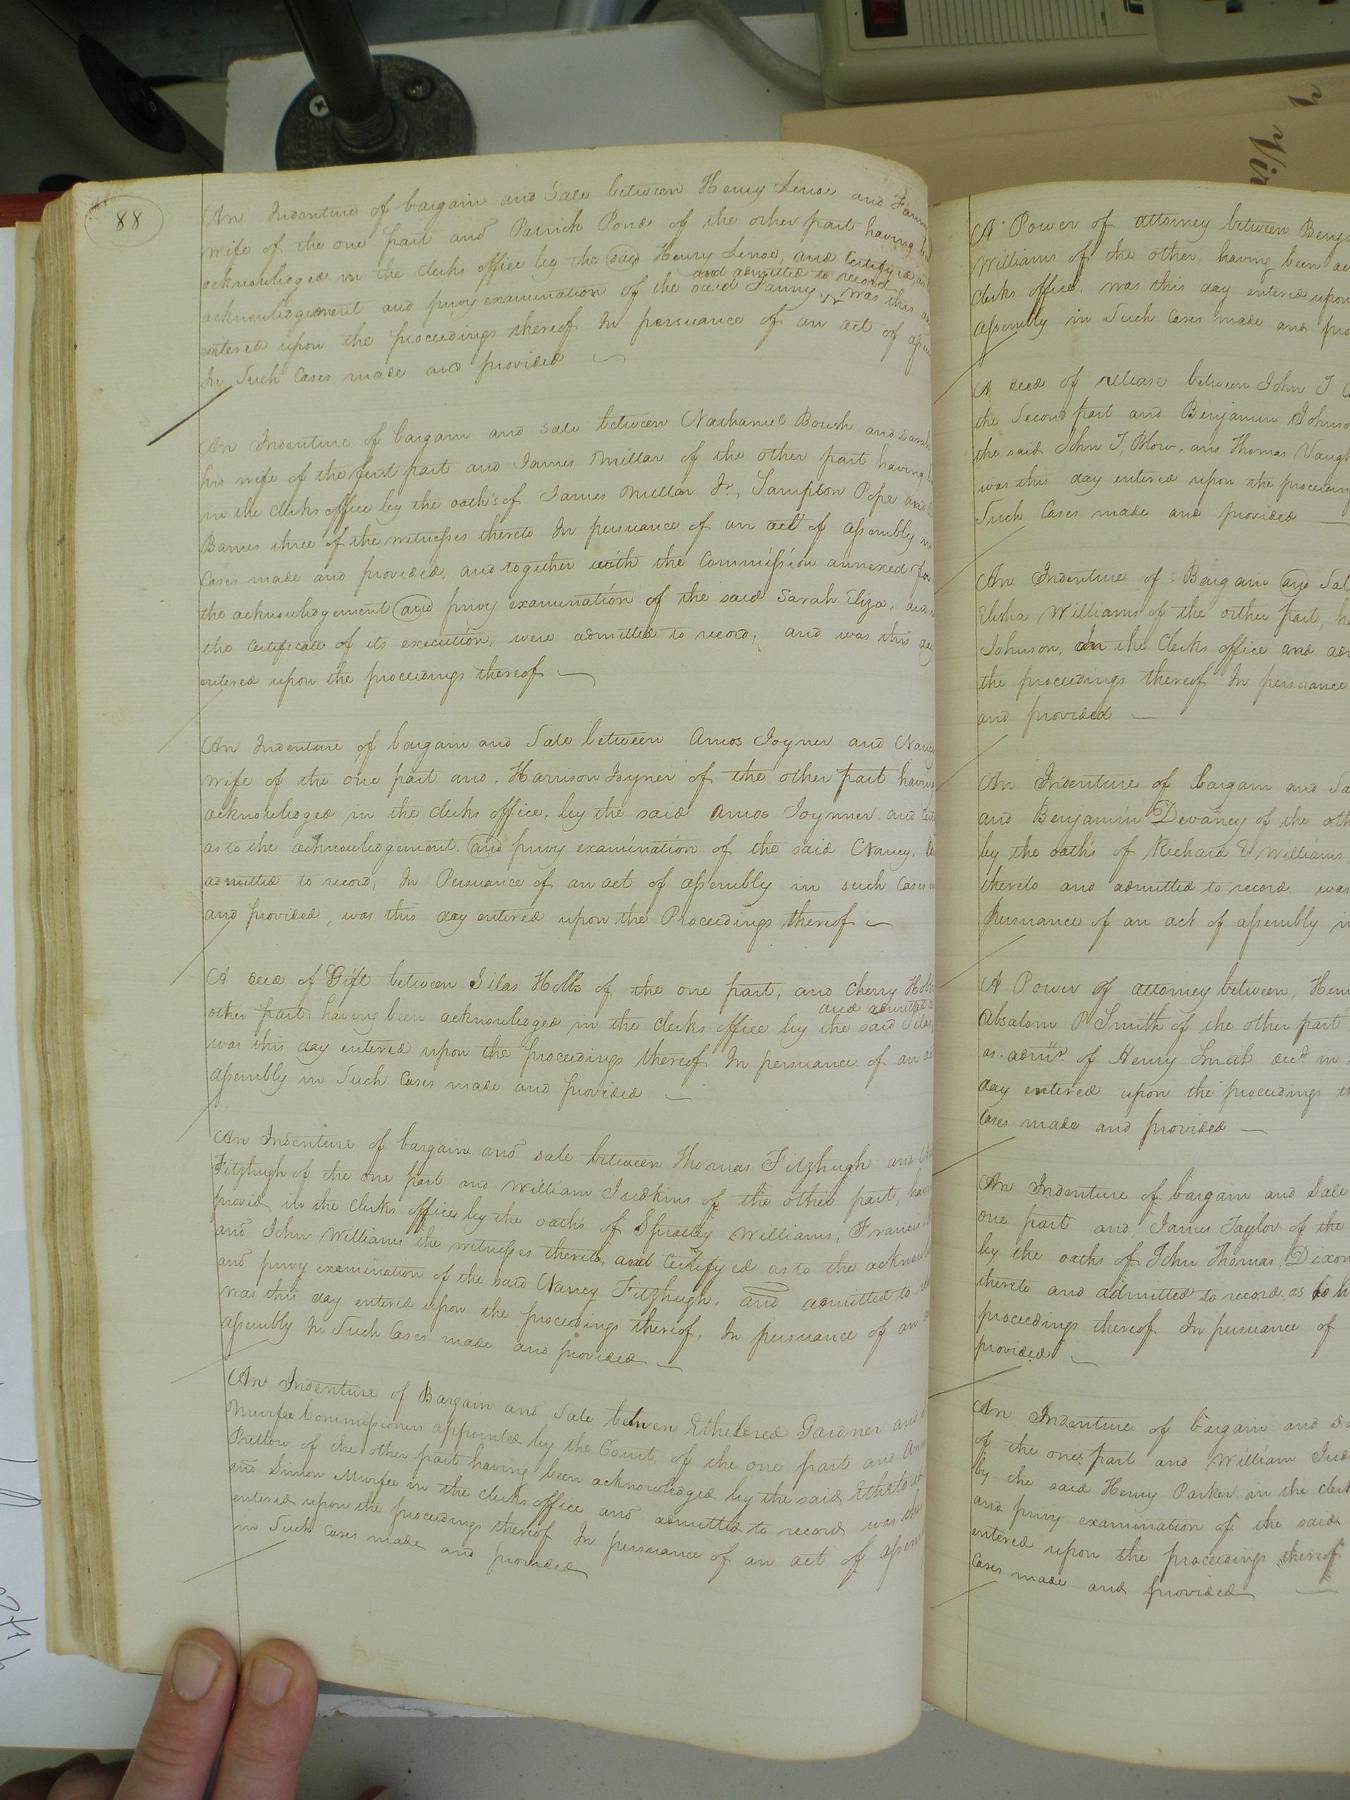 88
An Indenture of bargain and Sale between Henry Lenoe and Fanny
wife of the one part and Patrick Pond of the other part having
acknowledged in the clerks office by the said Henry Lenoe, and Certifyed as
and admitted to record
acknowledgement and privy examination of the said Fanny, was this
entered upon the proceedings thereof In persuance of an act of
In Such Cases made and provided
An Indenture of bargain and sale between Nathaniel Boush and Sarah
his wife of the first part and James Millar of the other part having
in the clerks office by the oath's of James Millar Jr, Sampson Pope and
Barnes three of the witnesses thereto In persuance of an act of assembly
Cases made and provided, and together with the Commission annexed for
the acknowledgement and privy examination of the said Sarah Eliza, and
the Certificate of its execution, were admitted to record, and was this day
entered upon the proceedings thereof
An Indenture of bargain and Sale between Amos Joyner and Nancy
wife of the one part and Harrison Joyner of the other part having
acknowledged in the clerks office, by the said Amos Joynner and
as to the acknowledgement and privy examination of the said Nancy,
admitted to record, In Persuance of an act of assembly in such Cases
and provided, was this day entered upon the Proceedings thereof
A deed of Gift between Silas Holls of the one part, and Cherry
and admitted
other part having been acknowledged in the clerks office by the said Silas
was this day entered upon the proceedings thereof In persuance of an
assembly in Such Cases made and provided
An Indenture of bargain and sale between Thomas Fitzhugh and
Fitzhugh of the one part and William Judkins of the other part,
proved in the Clerks office by the oaths of Spratley Williams, Francis
and John Williams the witnesses thereto, and Certifyed as to the
and privy examination of the said Nancy Fitzhugh, and admitted to
was this day entered upon the proceedings thereof, In persuance of an
assembly In Such Cases made and provided
An Indenture of Bargain and Sale between Etheldred Gardner and
Murfee Commissioners appointed by the Court, of the one part and
Pretlow of the other part having been acknowledged by the said
and Simon Murfee in the clerks office and admitted to record was
entered upon the proceedings thereof In persuance of an act of
in Such Cases made and provided
A Power of attorney between
Williams of the other, having been
Clerks office, was this day entered upon
assembly in Such Cases made and
A deed of release between John T
the Second part and Benjamin
the said John T, Blow, and Thomas
was this day entered upon the
Such Cases made and provided
An Indenture of Bargain and
Elisha Williams of the other part,
Johnson, in the Clerks office and
the proceedings thereof In persuance
and provided
An Indenture of bargain and
and Benjamin Devaney of the
by the oaths of Richard E Williams,
thereto and admitted to record, was
Persuance of an act of assembly
A Power of attorney between,
Absalom P Smith of the other part
as admr of Henry Smith decd in
day entered upon the proceedings
Cases made and provided
An Indenture of bargain and Sale
one part and James Taylor of the
by the oaths of John Thomas,
thereto and admitted to record, as to
proceedings thereof In persuance of
provided
An Indenture of bargain and
of the one part and William
by the said Henry Parker in the
and privy examination of the said
entered upon the proceedings thereof
Cases made and provided